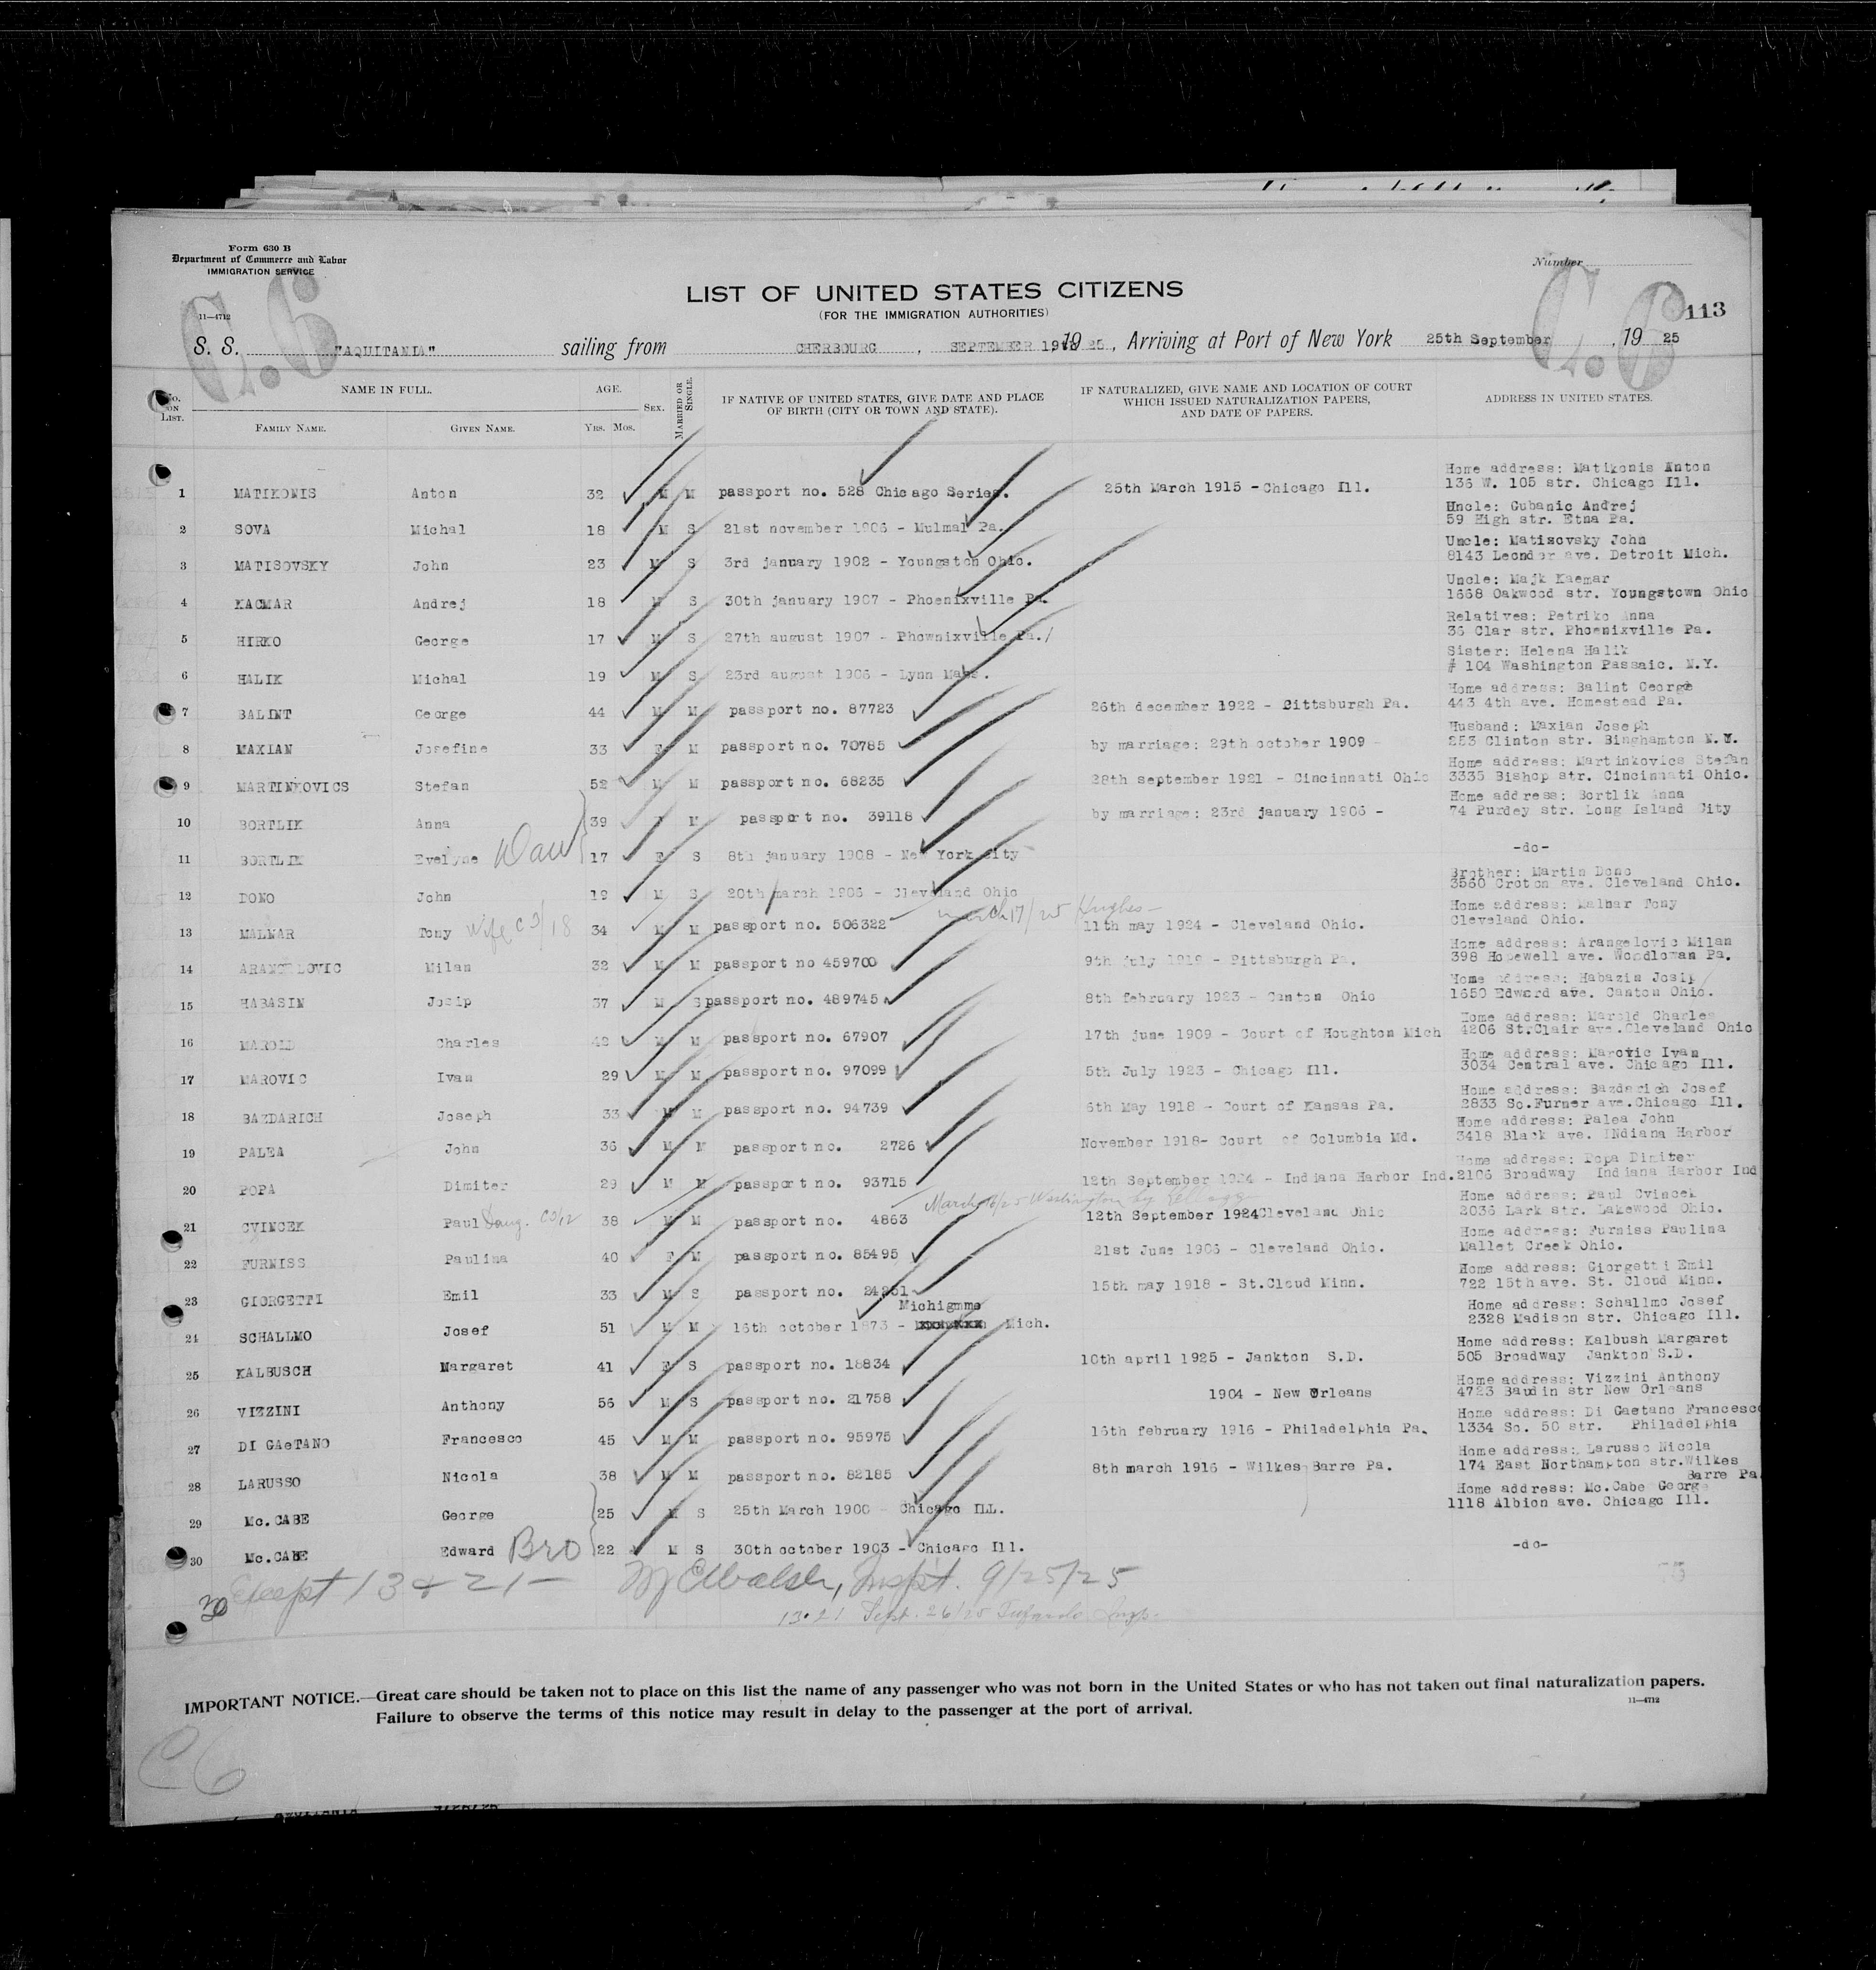 Form 630 B
Department of Commerce and Labor
IMMIGRATION SERVICE
11—4712
C.6
Number
C.6
113
LIST OF UNITED STATES CITIZENS
(FOR THE IMMIGRATION AUTHORITIES)
S. S. "AQUITANIA" sailing from CHERBOURG, SEPTEMBER 19 25, Arriving at Port of New York 25th September, 19 25
No. ON LIST. NAME IN FULL. FAMILY NAME. GIVEN NAME. AGE. YRS. MOS. SEX. MARRIED OR SINGLE. IF NATIVE OF UNITED STATES, GIVE DATE AND PLACE OF BIRTH (CITY OR TOWN AND STATE). IF NATURALIZED, GIVE NAME AND LOCATION OF COURT WHICH ISSUED NATURALIZATION PAPERS, AND DATE OF PAPERS. ADDRESS IN UNITED STATES.
Home address: Matikonis Anton
1 MATIKONIS Anton 32 M M passport no. 528 Chicago Series. 25th March 1915 - Chicago Ill. 136 W. 105 str. Chicago Ill.
Uncle: Gubanic Andrej
2 SOVA Michal 18 M S 21st november 1906 - Mulmal Pa. 59 High str. Etna Pa.
Uncle: Matisovsky John
3 MATISOVSKY John 23 M S 3rd january 1902 - Youngstoh Ohio. 8143 Leonder ave. Detroit Mich.
Uncle: Majk Kaemar
4 KACMAR Andrej 18 M S 30th january 1907 - Phoenixville Pa. 1668 Oakwood str. Youngstown Ohio
Relatives: Petriko Anna
5 HIRKO George 17 M S 27th august 1907 - Phownixville Pa./ 36 Clar str. Phoenixville Pa.
Sister: Helena Halik
6 HALIK Michal 19 M S 23rd august 1906 - Lynn Mass. # 104 Washington Passaic. N.Y.
Home address: Balint George
7 BALINT George 44 M M passport no. 87723 26th december 1922 - Pittsburgh Pa. 443 4th ave. Homestead Pa.
Husband: Maxian Joseph
8 MAXIAN Josefine 33 F M passport no. 70785 by marriage: 29th october 1909 - 253 Clinton str. Binghamton N.Y.
Home address: Martinkovics Stefan
9 MARTINKOVICS Stefan 52 M M passport no. 68235 28th september 1921 - Cincinnati Ohio 3335 Bishop str. Cincinnati Ohio.
Home address: Bortlik Anna
10 BORTLIK Anna 39 F M passport no. 39118 by marriage: 23rd january 1906 - 74 Purdey str. Long Island City
11 BORTLIK Evelyne Dau 17 F S 8th january 1908 - New York City -do-
Brother: Martin Dono
12 DONO John 19 M S 20th march 1906 - Cleveland Ohio 3560 Croton ave. Cleveland Ohio.
march 17/25 Hughes - Home address: Malnar Tony
13 MALNAR Tony wife C3/18 34 M M passport no. 506322 11th may 1924 - Cleveland Ohio. Cleveland Ohio.
Home address: Arangelovic Milan
14 ARANGELOVIC Milan 32 M M passport no 459700 9th july 1919 - Pittsburgh Pa. 398 Hopewell ave. Woodlowan Pa.
Home address: Habazin Josip
15 HABASIN Josip 37 M S passport no. 489745 8th february 1923 - Canton Ohio 1650 Edward ave. Canton Ohio.
Home address: Marold Charles
16 MAROLD Charles 48 M M passport no. 67907 17th june 1909 - Court of Houghton Mich 4206 St.Clair ave.Cleveland Ohio
Home address: Marovic Ivan
17 MAROVIC Ivan 29 M M passport no. 97099 5th July 1923 - Chicago Ill. 3034 Central ave. Chicago Ill.
Home address: Bazdarich Josef
18 BAZDARICH Joseph 33 M M passport no. 94739 6th May 1918 - Court of Kansas Pa. 2833 So.Furner ave.Chicago Ill.
Home address: Palea John
19 PALEA John 36 M M passport no. 2726 November 1918- Court of Columbia Md. 3418 Black ave. INdiana Harbor
Home address: Popa Dimiter
20 POPA Dimiter 29 M M passport no. 93715 12th September 1924 - Indiana Harbor Ind. 2106 Broadway Indiana Harbor Ind
March 6/25 Washington by Kellogg Home address: Paul Cvincek
21 CVINCEK Paul Daug. C3/12 38 M M passport no. 4863 12th September 1924Cleveland Ohio 2036 Lark str. Lakewood Ohio.
Home address: Furniss Paulina
22 FURNISS Paulina 40 F M passport no. 85495 21st June 1906 - Cleveland Ohio. Mallet Creek Ohio.
Home address: Giorgetti Emil
23 GIORGETTI Emil 33 M S passport no. 24351 15th may 1918 - St.Cloud Minn. 722 15th ave. St. Cloud Minn.
Michigmme Home address: Schallmo Josef
24 SCHALLMO Josef 51 M M 16th october 1873 - Mich. 2328 Madison str. Chicago Ill.
Home address: Kalbush Margaret
25 KALBUSCH Margaret 41 F S passport no. 18834 10th april 1925 - Jankton S.D. 505 Broadway Jankton S.D.
Home address: Vizzini Anthony
26 VIZZINI Anthony 56 M S passport no. 21758 1904 - New Orleans 4723 Baudin str New Orleans
Home address: Di Gaetano Francesco
27 DI GAeTANO Francesco 45 M M passport no. 95975 16th february 1916 - Philadelphia Pa. 1334 So. 50 str. Philadelphia
Home address: Larusso Nicola
28 LARUSSO Nicola 38 M M passport no. 82185 8th march 1916 - Wilkes Barre Pa. 174 East Northampton str.Wilkes
Barre Pa
Home address: Mc.Cabe George
29 Mc.CABE George 25 M S 25th March 1900 - Chicago ILL. 1118 Albion ave. Chicago Ill.
30 Mc.CABE Edward Bro 22 M S 30th october 1903 - Chicago Ill. -do-
Except 13 & 21 - Walsh, Inspt. 9/25/25
13.21 Sept. 26/25 Insp.
IMPORTANT NOTICE.—Great care should be taken not to place on this list the name of any passenger who was not born in the United States or who has not taken out final naturalization papers.
Failure to observe the terms of this notice may result in delay to the passenger at the port of arrival.
11—4712
C6